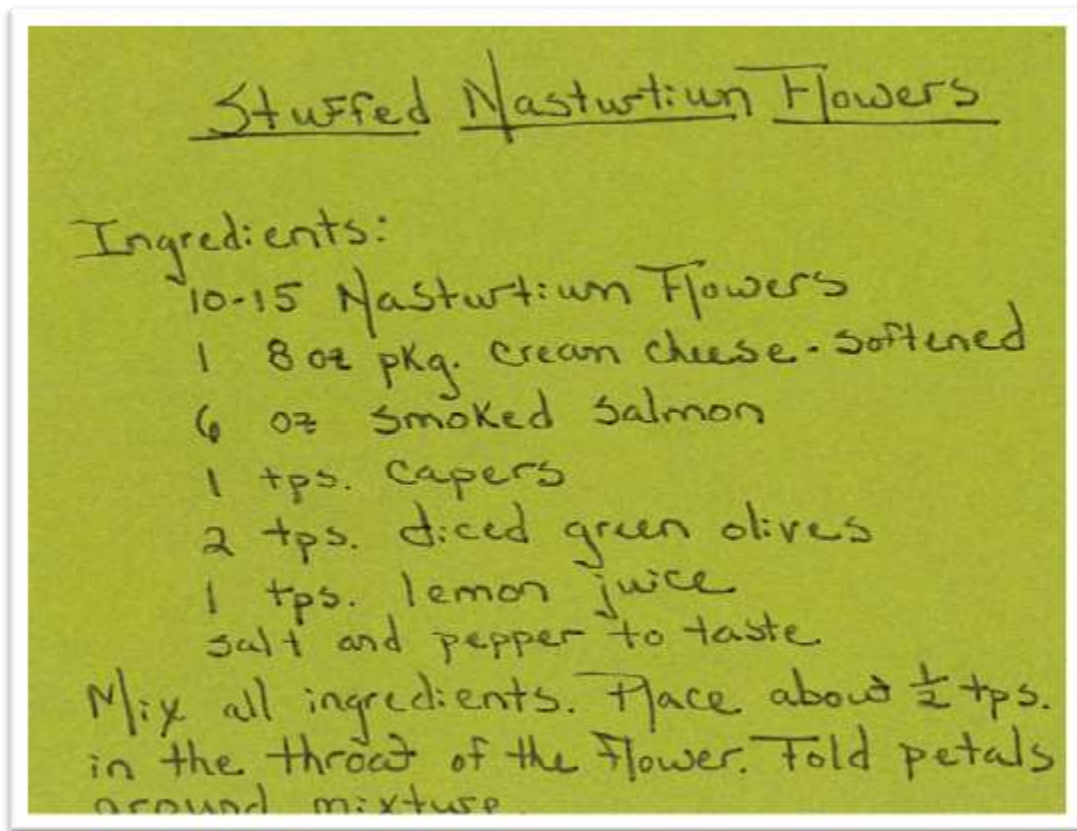 Stuffed Nasturtiun Flowers
Ingredients:
10-15 Nasturtium Flowers
1 8 oz pkg. cream cheese - softened
6 oz smoked salmon
1 tps. capers
2 tps. diced green olives
1 tps. lemon juice
salt and pepper to taste
Mix all ingredients. Place about ½ tps.
in the throat of the flower. Fold petals
around mixture.